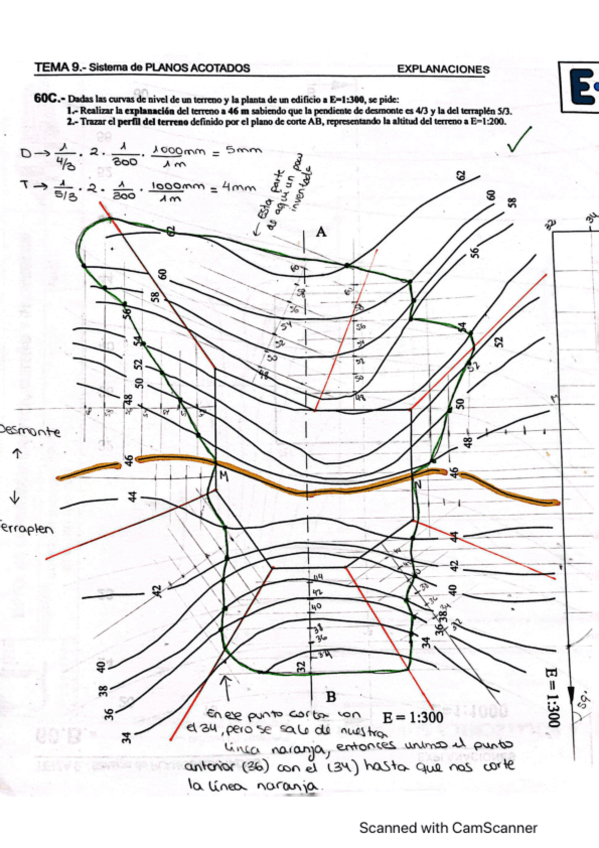 TEMA 9.- Sistema de PLANOS ACOTADOS
EXPLANACIONES
E
60C.- Dadas las curvas de nivel de un terreno y la planta de un edificio a E=1:300, se pide:
1.- Realizar la explanación del terreno a 46 m sabiendo que la pendiente de desmonte es 4/3 y la del terraplén 5/3.
2.- Trazar el perfil del terreno definido por el plano de corte AB, representando la altitud del terreno a E=1:200.
D → 1/4/3 · 2 · 1/300 · 1000mm/1m = 5mm
T → 1/5/3 · 2 · 1/300 · 1000mm/1m = 4mm
Esta parte
de aquí un poco
inventada
A
62
60
58
56
54
52
50
48
46
44
42
40
38
36
34
62
60
58
56
54
52
50
48
46
44
42
40
38
36
34
32
34
Desmonte
Terraplen
M
N
44
42
40
38
36
34
32
B
E = 1:300
E = 1:300
En ese punto corta con
el 34, pero se sale de nuestra
línea naranja, entonces unimos el punto
anterior (36) con el (34) hasta que nos corte
la línea naranja.
Scanned with CamScanner